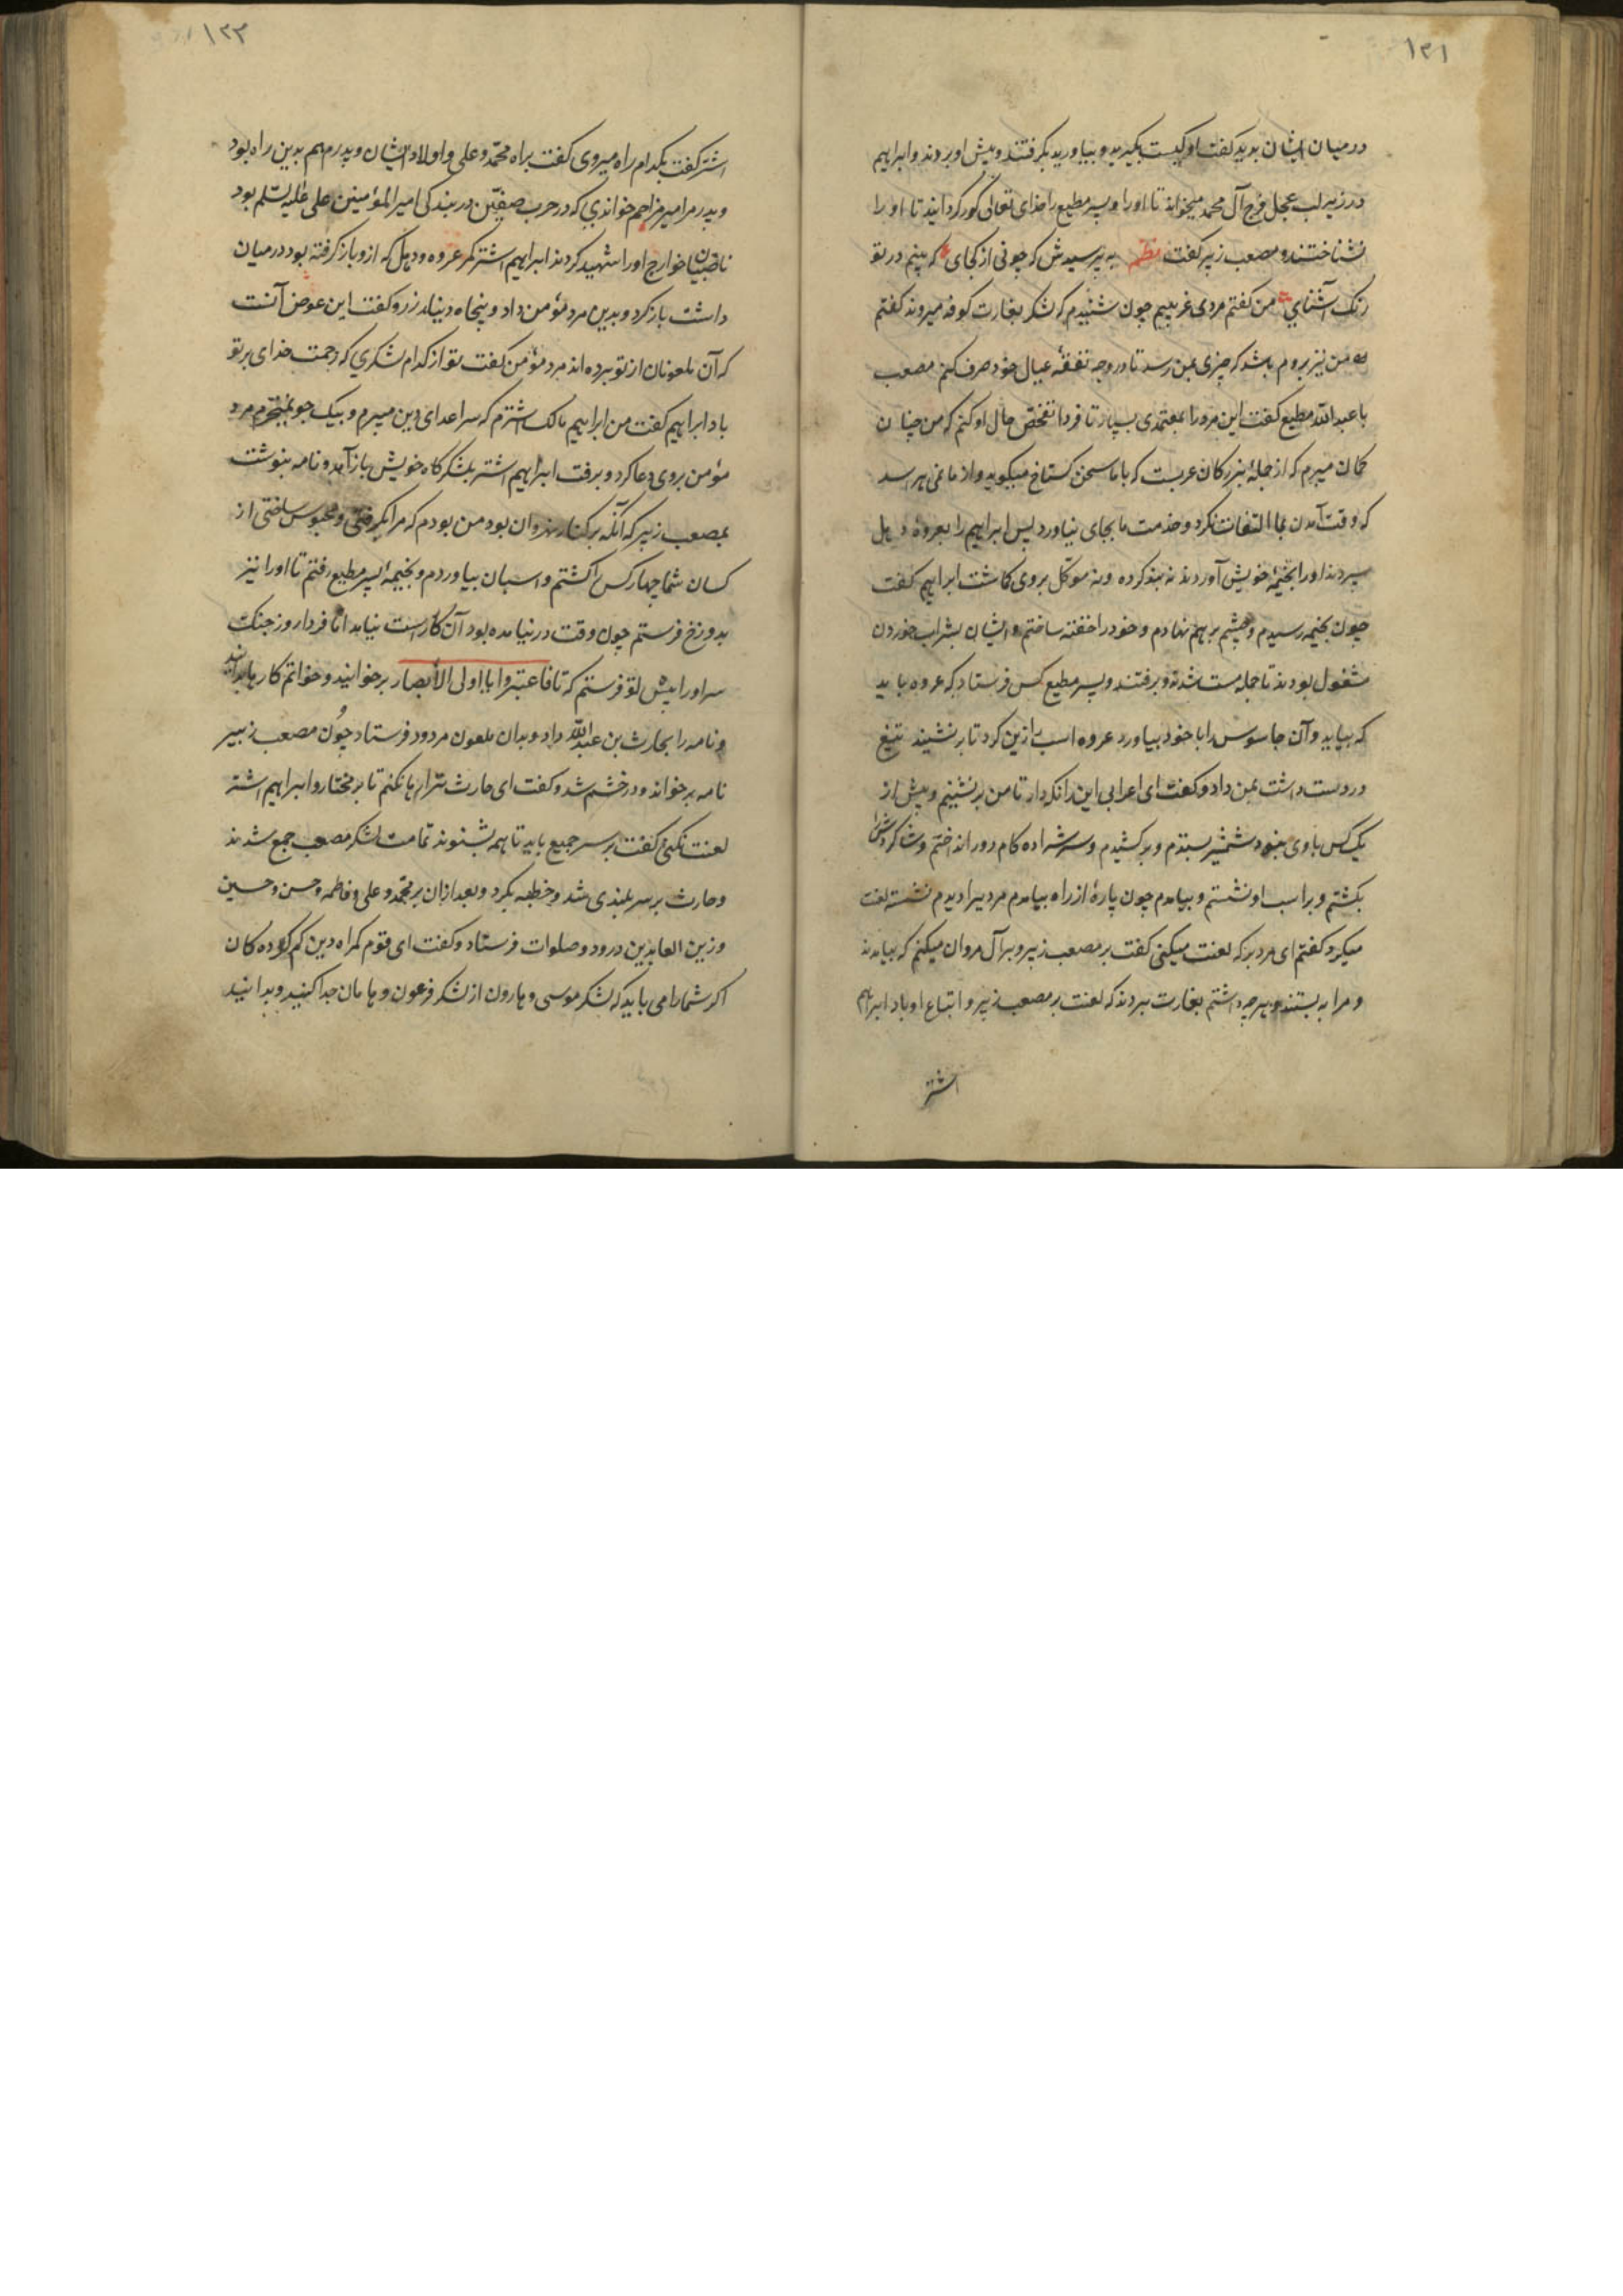 ۱۲۱
در میان ایشان بدید گفت او کیست بگیرید و بیاورید بگرفتند و پیش او بردند و ابراهیم
در زیر لب عجل فرج آل محمد میخواند تا او را و پسر مطیع را خدای تعالی کور گردانید تا او را
نشناختند و مصعب زبیر گفت نظم به پرسیدش که چونی از کجای که بینم در تو
رنک آشنایی من گفتم مردی غریبم چون شنیدم که لشکر بغارت کوفه میروند گفتم
من نیز بروم باشد که چیزی بمن رسد تا در وجه نفقهٔ عیال خود صرف کنم مصعب
با عبدالله مطیع گفت این مرد را بمعتمدی بسپار تا فردا تفحص حال او کنم که من چنان
کمان میبرم که از جملهٔ بزرکان عربست که با ما سخن کستاخ میکوید و از ما نمی هراسد
که وقت آمدن بما التفات نکرد و خدمت ما بجای نیاورد پس ابراهیم را بعروهٔ دیل
سپردند او را بخیمهٔ خویش آوردند نه بند کرده و نه موکل بروی کماشت ابراهیم گفت
چون بخیمه رسیدم و چشم برهم نهادم و خود را خفته ساختم و ایشان بشراب خوردن
مشغول بودند تا جمله مست شدند و برفتند و پسر مطیع کس فرستاد که عروه باید
که بیاید و آن جاسوس را با خود بیاورد عروه اسب را زین کرد تا برنشیند تیغ
در دست داشت بمن داد و کفت ای اعرابی این را نکهدار تا من برنشینم و بیش از
یک کس با وی نبود شمشیر بستدم و برکشیدم و سرش را ده کام دور انداختم و شاکردش را
بکشتم و بر اسب او نشستم و بیامدم چون پارهٔ از راه بیامدم مردیرا دیدم نشسته لعنت
میکرد کفتم ای مرد بر که لعنت میکنی کفت بر مصعب زبیر و بر آل مروان میکنم که بیامدند
و مرا به بستند و هرچه داشتم بغارت بردند که لعنت بر مصعب زبیر و اتباع او باد ابراهیم
اشتر
۱۲۲
اشتر کفت بکدام راه میروی کفت براه محمد و علی و اولاد ایشان و پدرم هم بدین راه بود
و پدر مرا میر مزاحم خواندی که در حرب صفین در بندکی امیرالمؤمنین علی علیه السلم بود
ناصبیان خوارج او را شهید کردند ابراهیم اشتر کمر عروه و دیل که ازو باز کرفته بود در میان
داشت باز کرد و بدین مرد مؤمن داد و پنجاه دینار زر و کفت این عوض آنست
که آن ملعونان از تو برده اند مرد مؤمن کفت تو از کدام لشکری که رحمت خدای بر تو
باد ابراهیم کفت من ابراهیم مالک اشترم که سر اعدای دین میبرم و بیک جو نمیخرم مرد
مؤمن بروی دعا کرد و برفت ابراهیم اشتر بلشکرکاه خویش باز آمد و نامه بنوشت
بمصعب زبیر که آنکه بر کنار نهروان بود من بودم که مرا بکرفتی و محبوس ساختی از
کسان شما چهار کس را کشتم و اسبان بیاوردم و بخیمهٔ پسر مطیع رفتم تا او را نیز
بدوزخ فرستم چون وقت در نیامده بود آن کار راست نیامد اما فردا روز جنک
سر او را پیش تو فرستم که تا فاعتبروا یا اولی الأبصار برخوانید و خواتم کارها بدانید
و نامه را بحارث بن عبدالله داد و بدان ملعون مردود فرستاد چون مصعب زبیر
نامه برخواند و در خشم شد و کفت ای حارث ترا رها نکنم تا بر مختار و ابراهیم اشتر
لعنت نکنی کفت بر سر جمیع باید تا همه بشنوند تمامت لشکر مصعب جمع شدند
و حارث بر سر بلندی شد و خطبه بکرد و بعد ازان بر محمد و علی و فاطمه و حسن و حسین
و زین العابدین درود و صلوات فرستاد و کفت ای قوم کمراه دین کم کرده کان
اکر شما را می باید که لشکر موسی و هارون از لشکر فرعون و هامان جدا کنید و بدانید